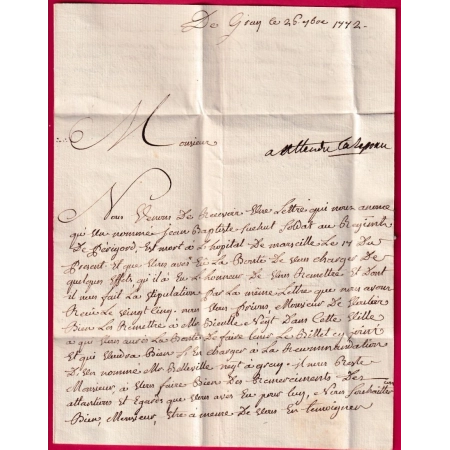 De Gray le 26 9bre 1772.
Monsieur
a attendre
Nous Venons De Recevoir Votre Lettre qui nous anonce
qu'un nomme Jean Baptiste soldat au Regiment
De Périgord, Est mort a L'hopital De marseille Le 14 Du
Present Et que vous avés Eu La Bonté De vous charger De
quelques Effets qu'il a Eu L'honneur De vous Remettre Et Dont
il nous fait La stipulation Par La même Lettre que nous avons
Recue Le vingt Cinq. nous vous Prions, Monsieur De vouloir
Bien Les Remettre a Mr Negt Dans Cette Ville
a qui vous aurés La Bonté De faire tenir Le Billet cy joint
Et qui voudra Bien s'En charger a La Recommandation
D'un nomme Mr Belleville negt a gray. il nous Reste
Monsieur, a vous faire Bien Des Remerciments Des
attentions Et Egards que vous avés Eu pour luy, Nous souhaitter
Bien, Monsieur, Etre a meme De vous En temoigner